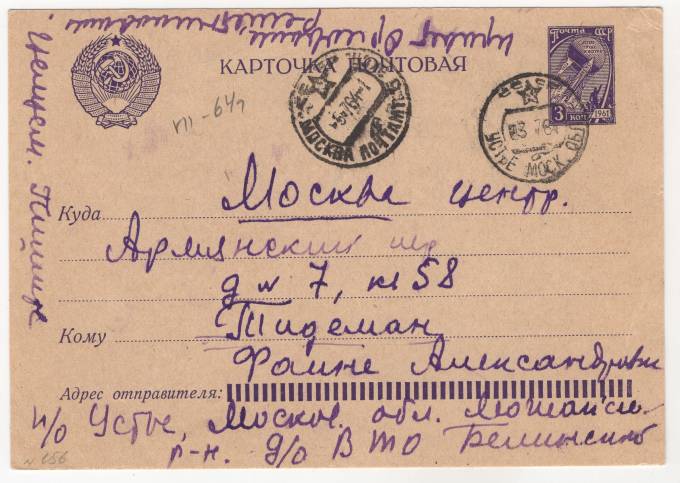 КАРТОЧКА ПОЧТОВАЯ
ПОЧТА СССР
3 КОП 1961
МОСКВА ПОЧТАМТ
УСТЬЕ МОСК. ОБЛ
VII-64г
Куда
Москва центр.
Армянский пер
д № 7, кв 58
Кому
Тидеман
Фаине Александровне
Адрес отправителя:
п/о Устье, Москов. обл. Можайск.
р-н. д/о ВТО Белинского
Целуем.
привет